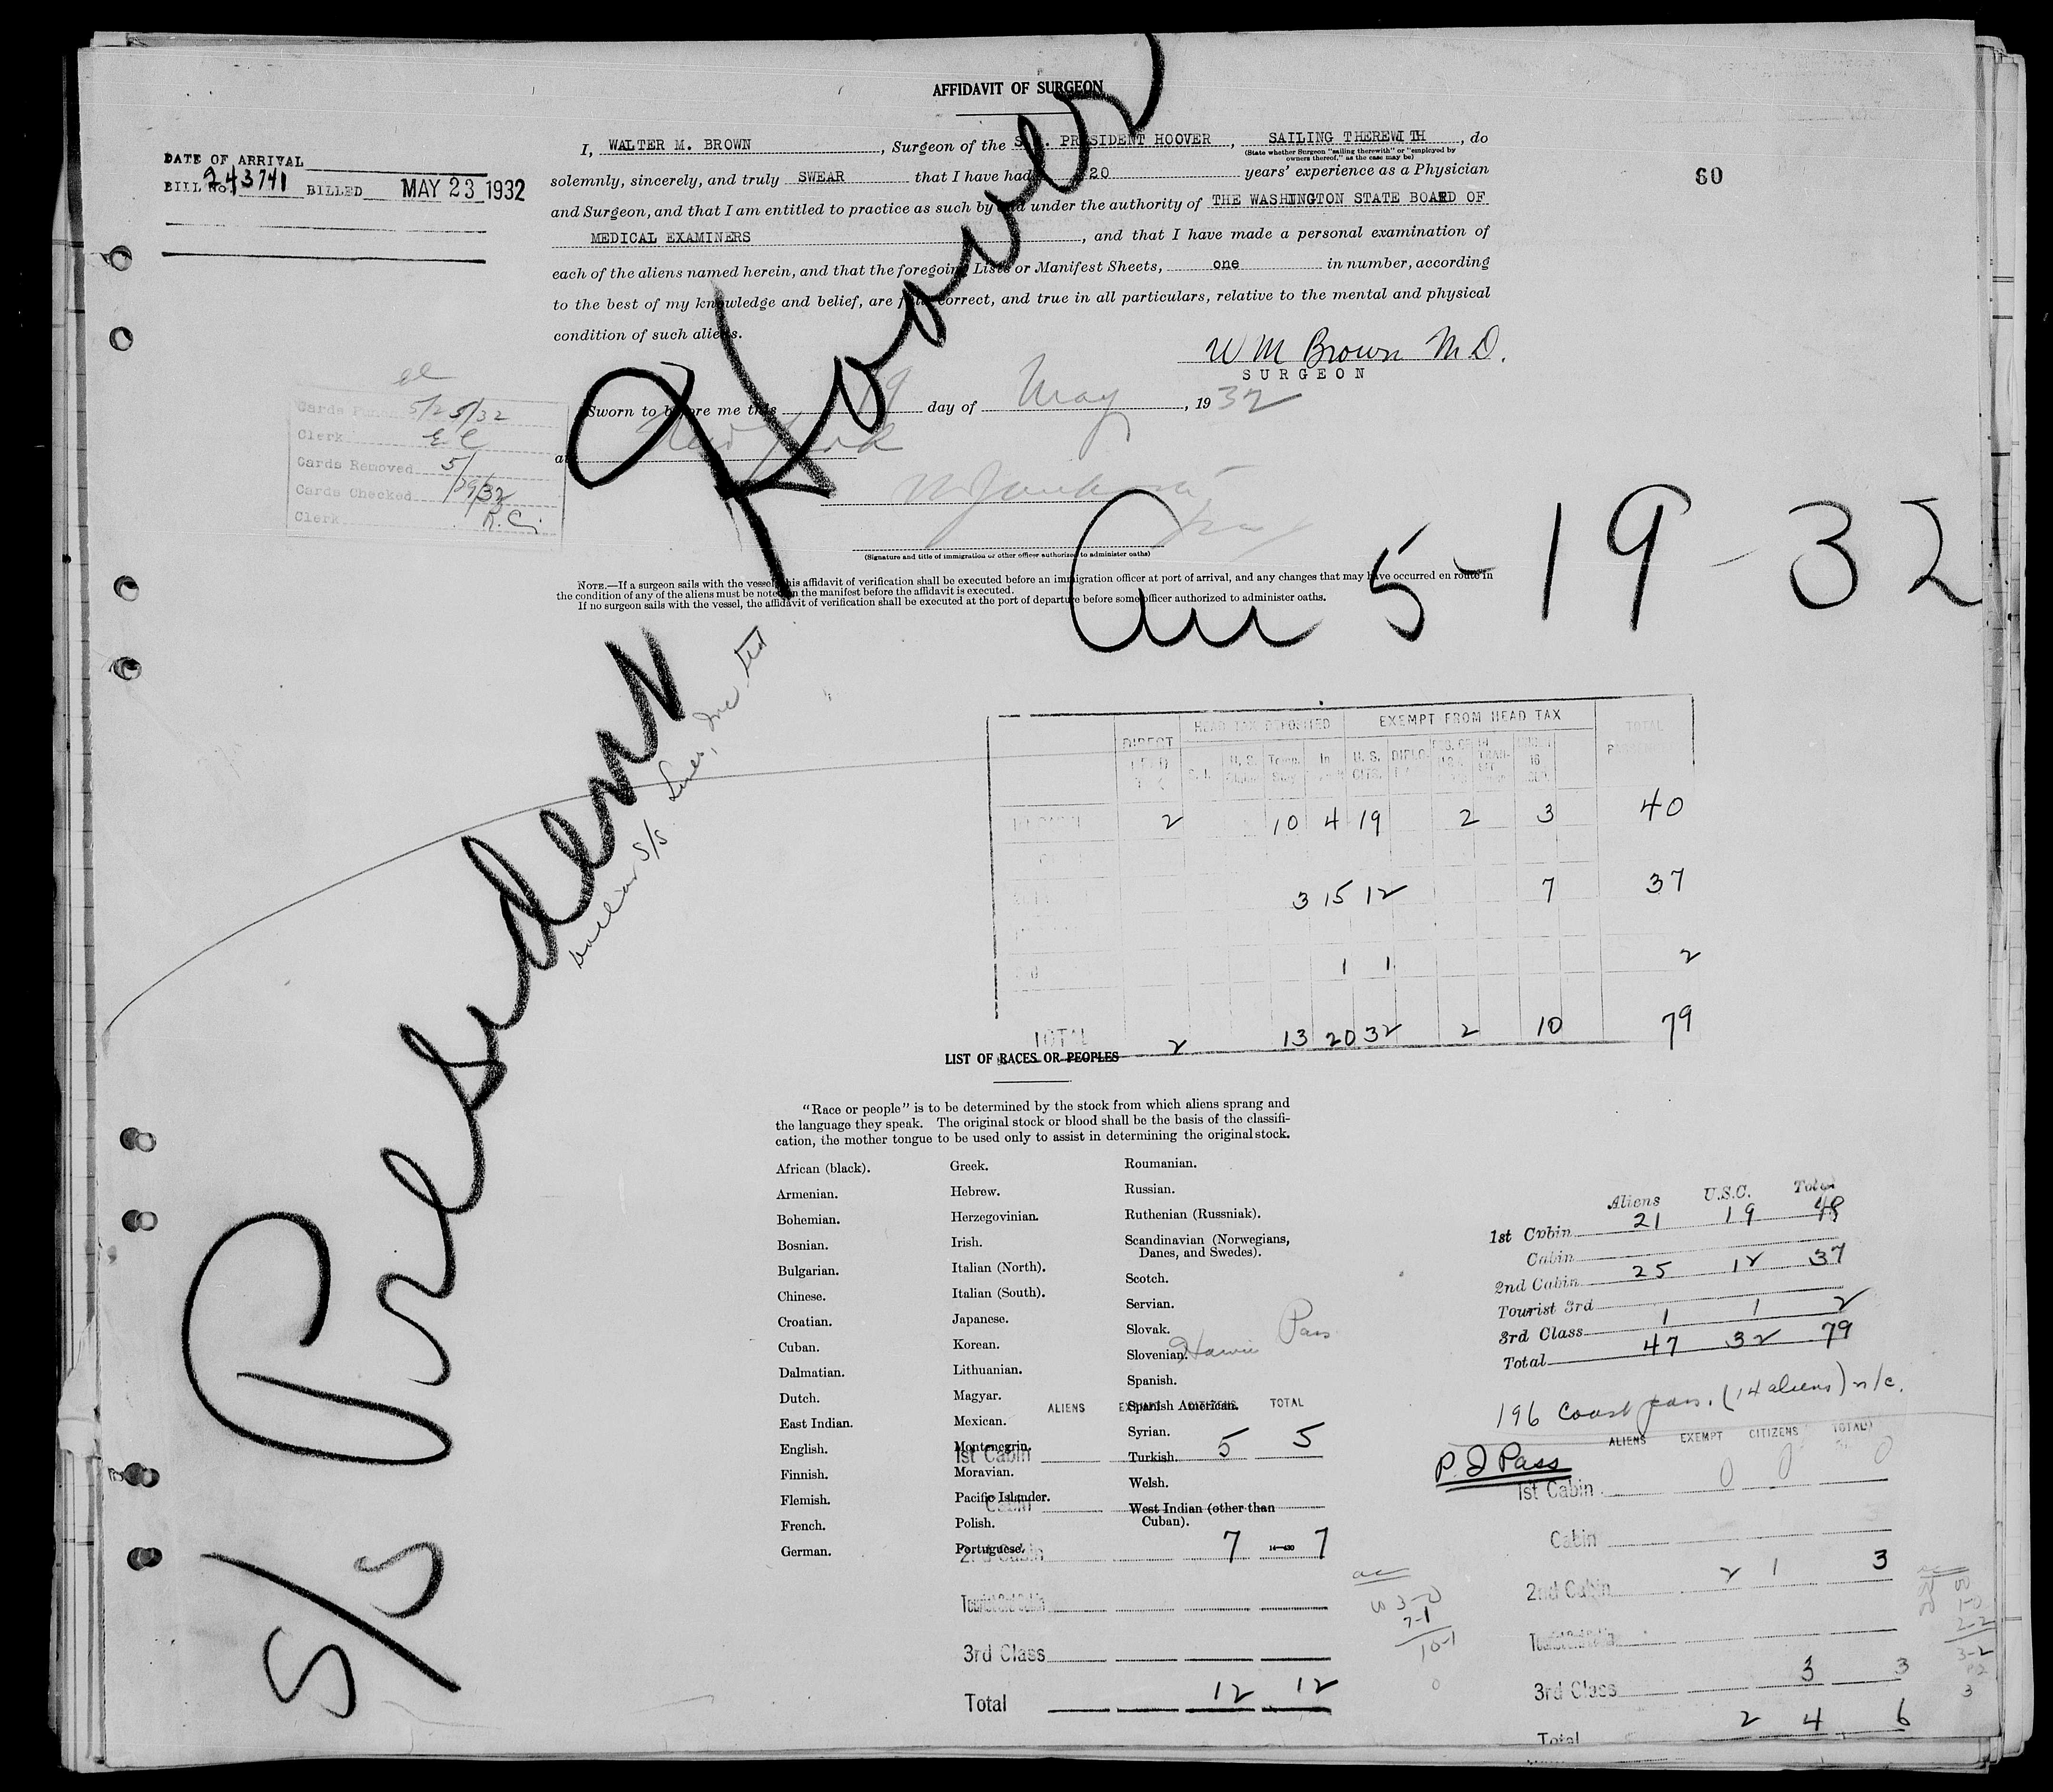 AFFIDAVIT OF SURGEON
60
DATE OF ARRIVAL
BILL No. 243741 BILLED MAY 23 1932
I, WALTER M. BROWN, Surgeon of the S. S. PRESIDENT HOOVER, SAILING THEREWITH, do
(State whether Surgeon "sailing therewith" or "employed by
owners thereof," as the case may be)
solemnly, sincerely, and truly SWEAR that I have had 20 years' experience as a Physician
and Surgeon, and that I am entitled to practice as such by and under the authority of THE WASHINGTON STATE BOARD OF
MEDICAL EXAMINERS, and that I have made a personal examination of
each of the aliens named herein, and that the foregoing Lists or Manifest Sheets, one in number, according
to the best of my knowledge and belief, are full, correct, and true in all particulars, relative to the mental and physical
condition of such aliens.
W M Brown M.D.
SURGEON
Sworn to before me this 19 day of May, 1932
at New York
(Signature and title of immigration or other officer authorized to administer oaths)
Cards 5/25/32
Clerk E C
Cards Removed 5/
Cards Checked 29/32
Clerk R. C.
NOTE.—If a surgeon sails with the vessel, this affidavit of verification shall be executed before an immigration officer at port of arrival, and any changes that may have occurred en route in
the condition of any of the aliens must be noted on the manifest before the affidavit is executed.
If no surgeon sails with the vessel, the affidavit of verification shall be executed at the port of departure before some officer authorized to administer oaths.
S/S President Hoover
Arr 5-19-32
Dollar S/S Lines, Inc Ltd
HEAD TAX DEPOSITED EXEMPT FROM HEAD TAX TOTAL
DIRECT U. S. Temp. In U. S. DIPLO.
2 10 4 19 2 3 40
3 15 12 7 37
1 1 2
TOTAL 2 13 20 32 2 10 79
LIST OF RACES OR PEOPLES
"Race or people" is to be determined by the stock from which aliens sprang and
the language they speak. The original stock or blood shall be the basis of the classifi-
cation, the mother tongue to be used only to assist in determining the original stock.
African (black).
Armenian.
Bohemian.
Bosnian.
Bulgarian.
Chinese.
Croatian.
Cuban.
Dalmatian.
Dutch.
East Indian.
English.
Finnish.
Flemish.
French.
German.
Greek.
Hebrew.
Herzegovinian.
Irish.
Italian (North).
Italian (South).
Japanese.
Korean.
Lithuanian.
Magyar.
Mexican.
Montenegrin.
Moravian.
Pacific Islander.
Polish.
Portuguese.
Roumanian.
Russian.
Ruthenian (Russniak).
Scandinavian (Norwegians,
Danes, and Swedes).
Scotch.
Servian.
Slovak.
Slovenian.
Spanish.
Spanish American.
Syrian.
Turkish.
Welsh.
West Indian (other than
Cuban).
Pass
ALIENS EXEMPT CITIZENS TOTAL
1st Cabin 5 5
Cabin
2nd Cabin 7 7
Tourist 3rd Cabin
3rd Class
Total 12 12
Aliens U.S.C. Total
1st Cabin 21 19 40
Cabin
2nd Cabin 25 12 37
Tourist 3rd
3rd Class 1 1 2
Total 47 32 79
196 Coast pass. (14 aliens) n/c.
P. I Pass
ALIENS EXEMPT CITIZENS TOTAL
1st Cabin 0 0 0
Cabin
2nd Cabin 2 1 3
Tourist 3rd Cabin
3rd Class 3 3
Total 2 4 6